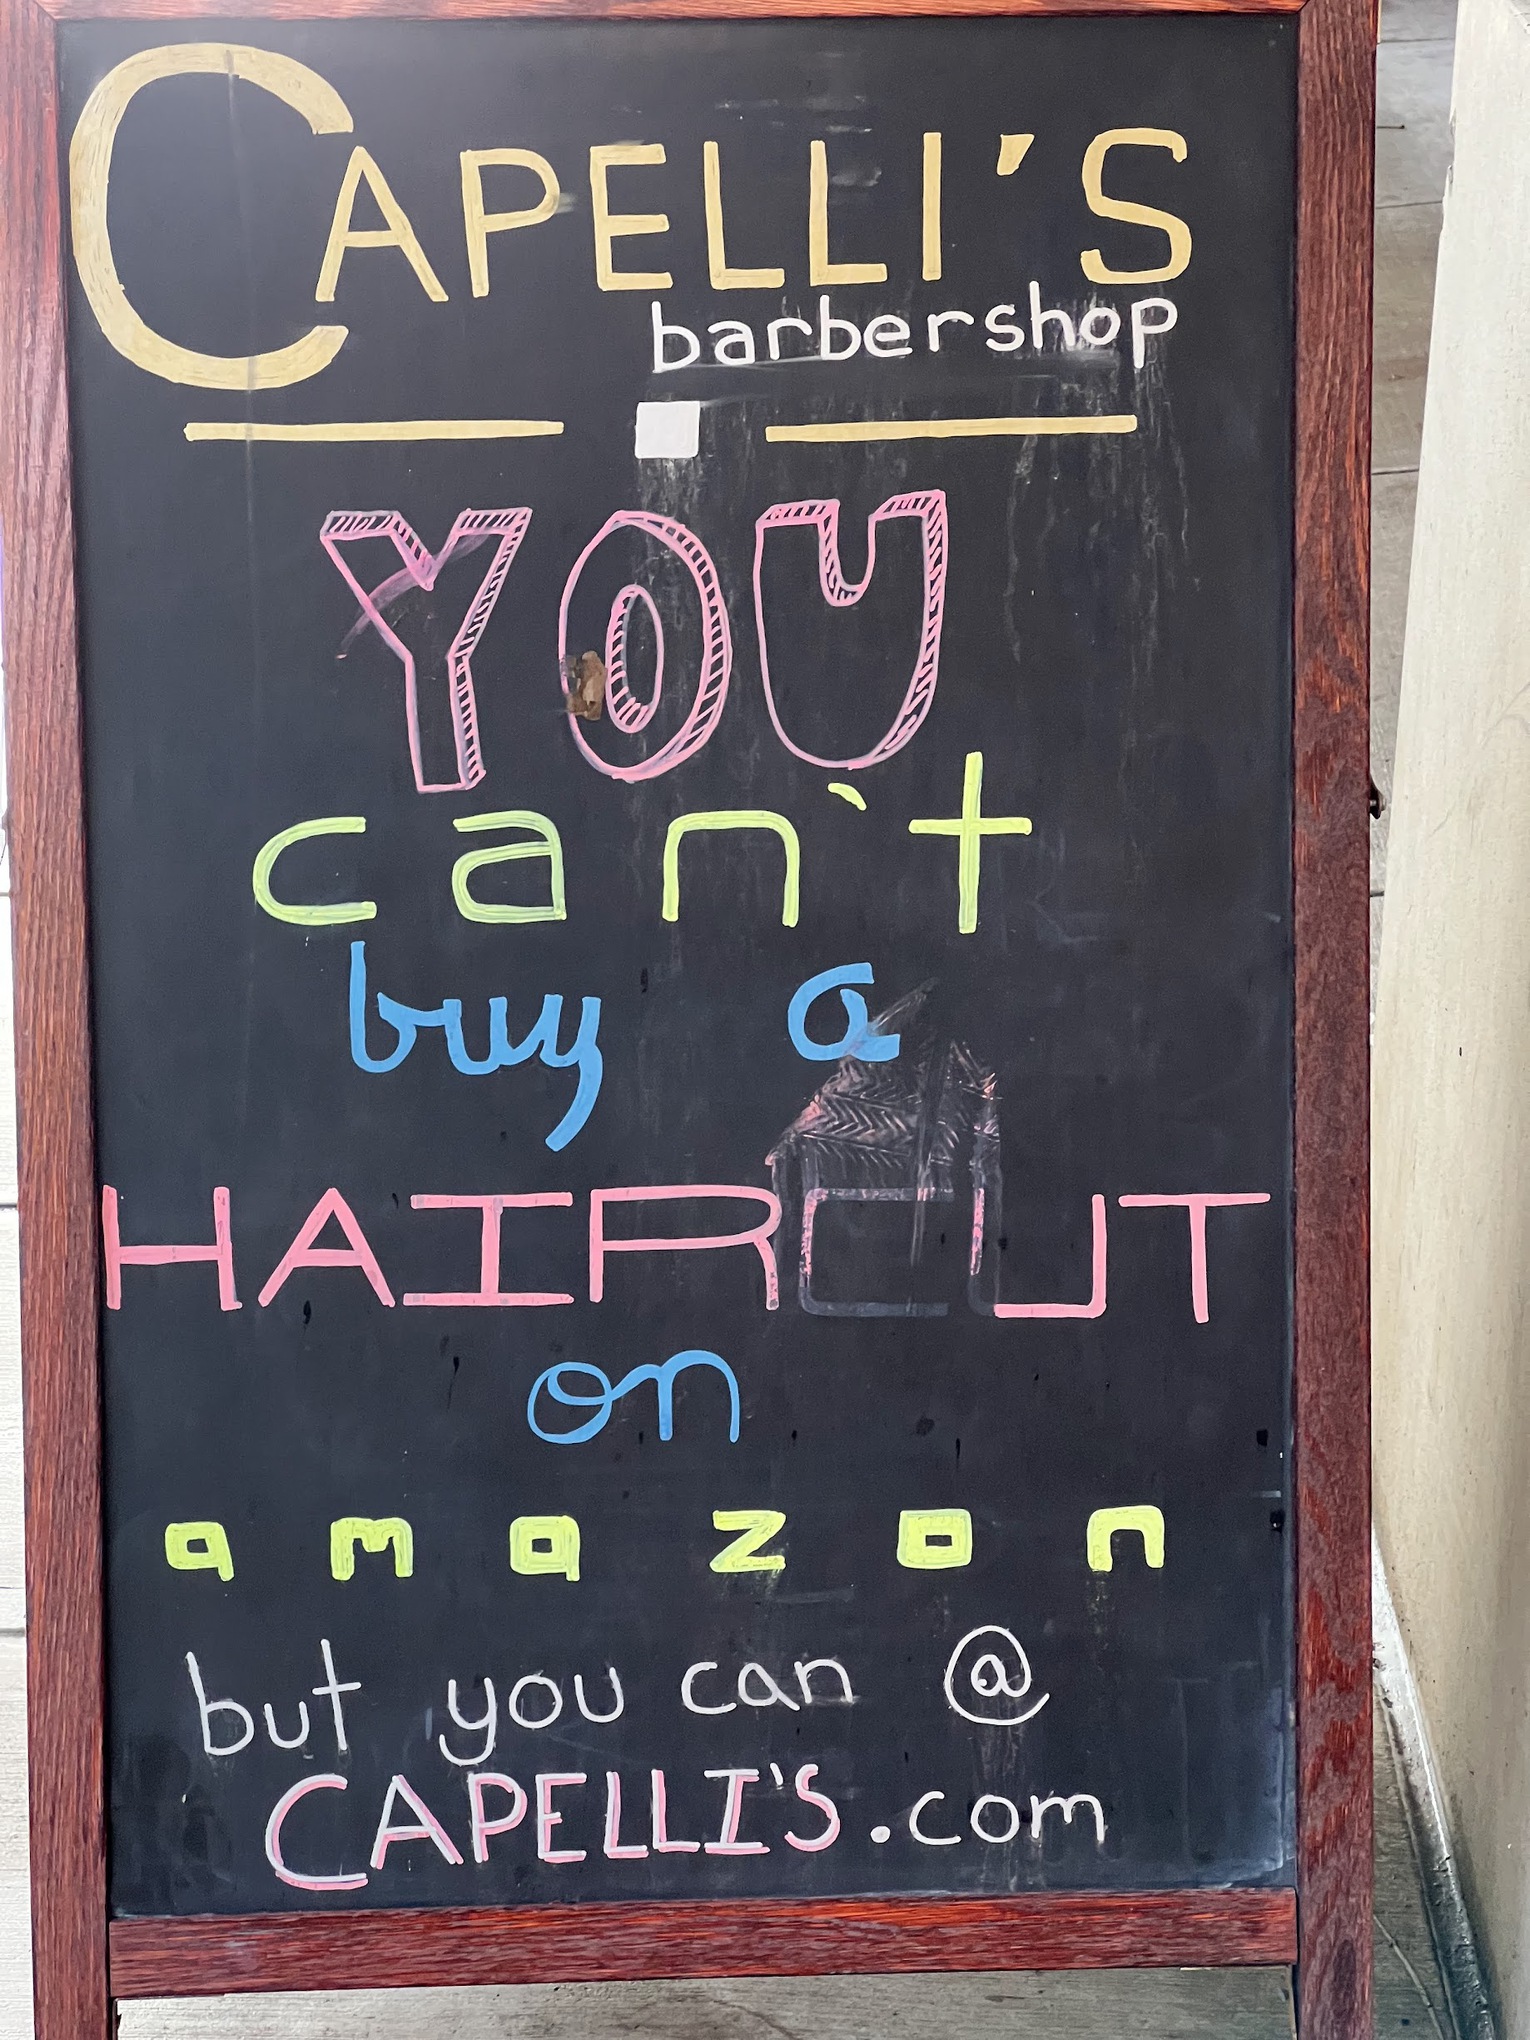 CAPELLI'S
barbershop
YOU
can't
buy a
HAIRCUT
on
amazon
but you can @
CAPELLI'S.com